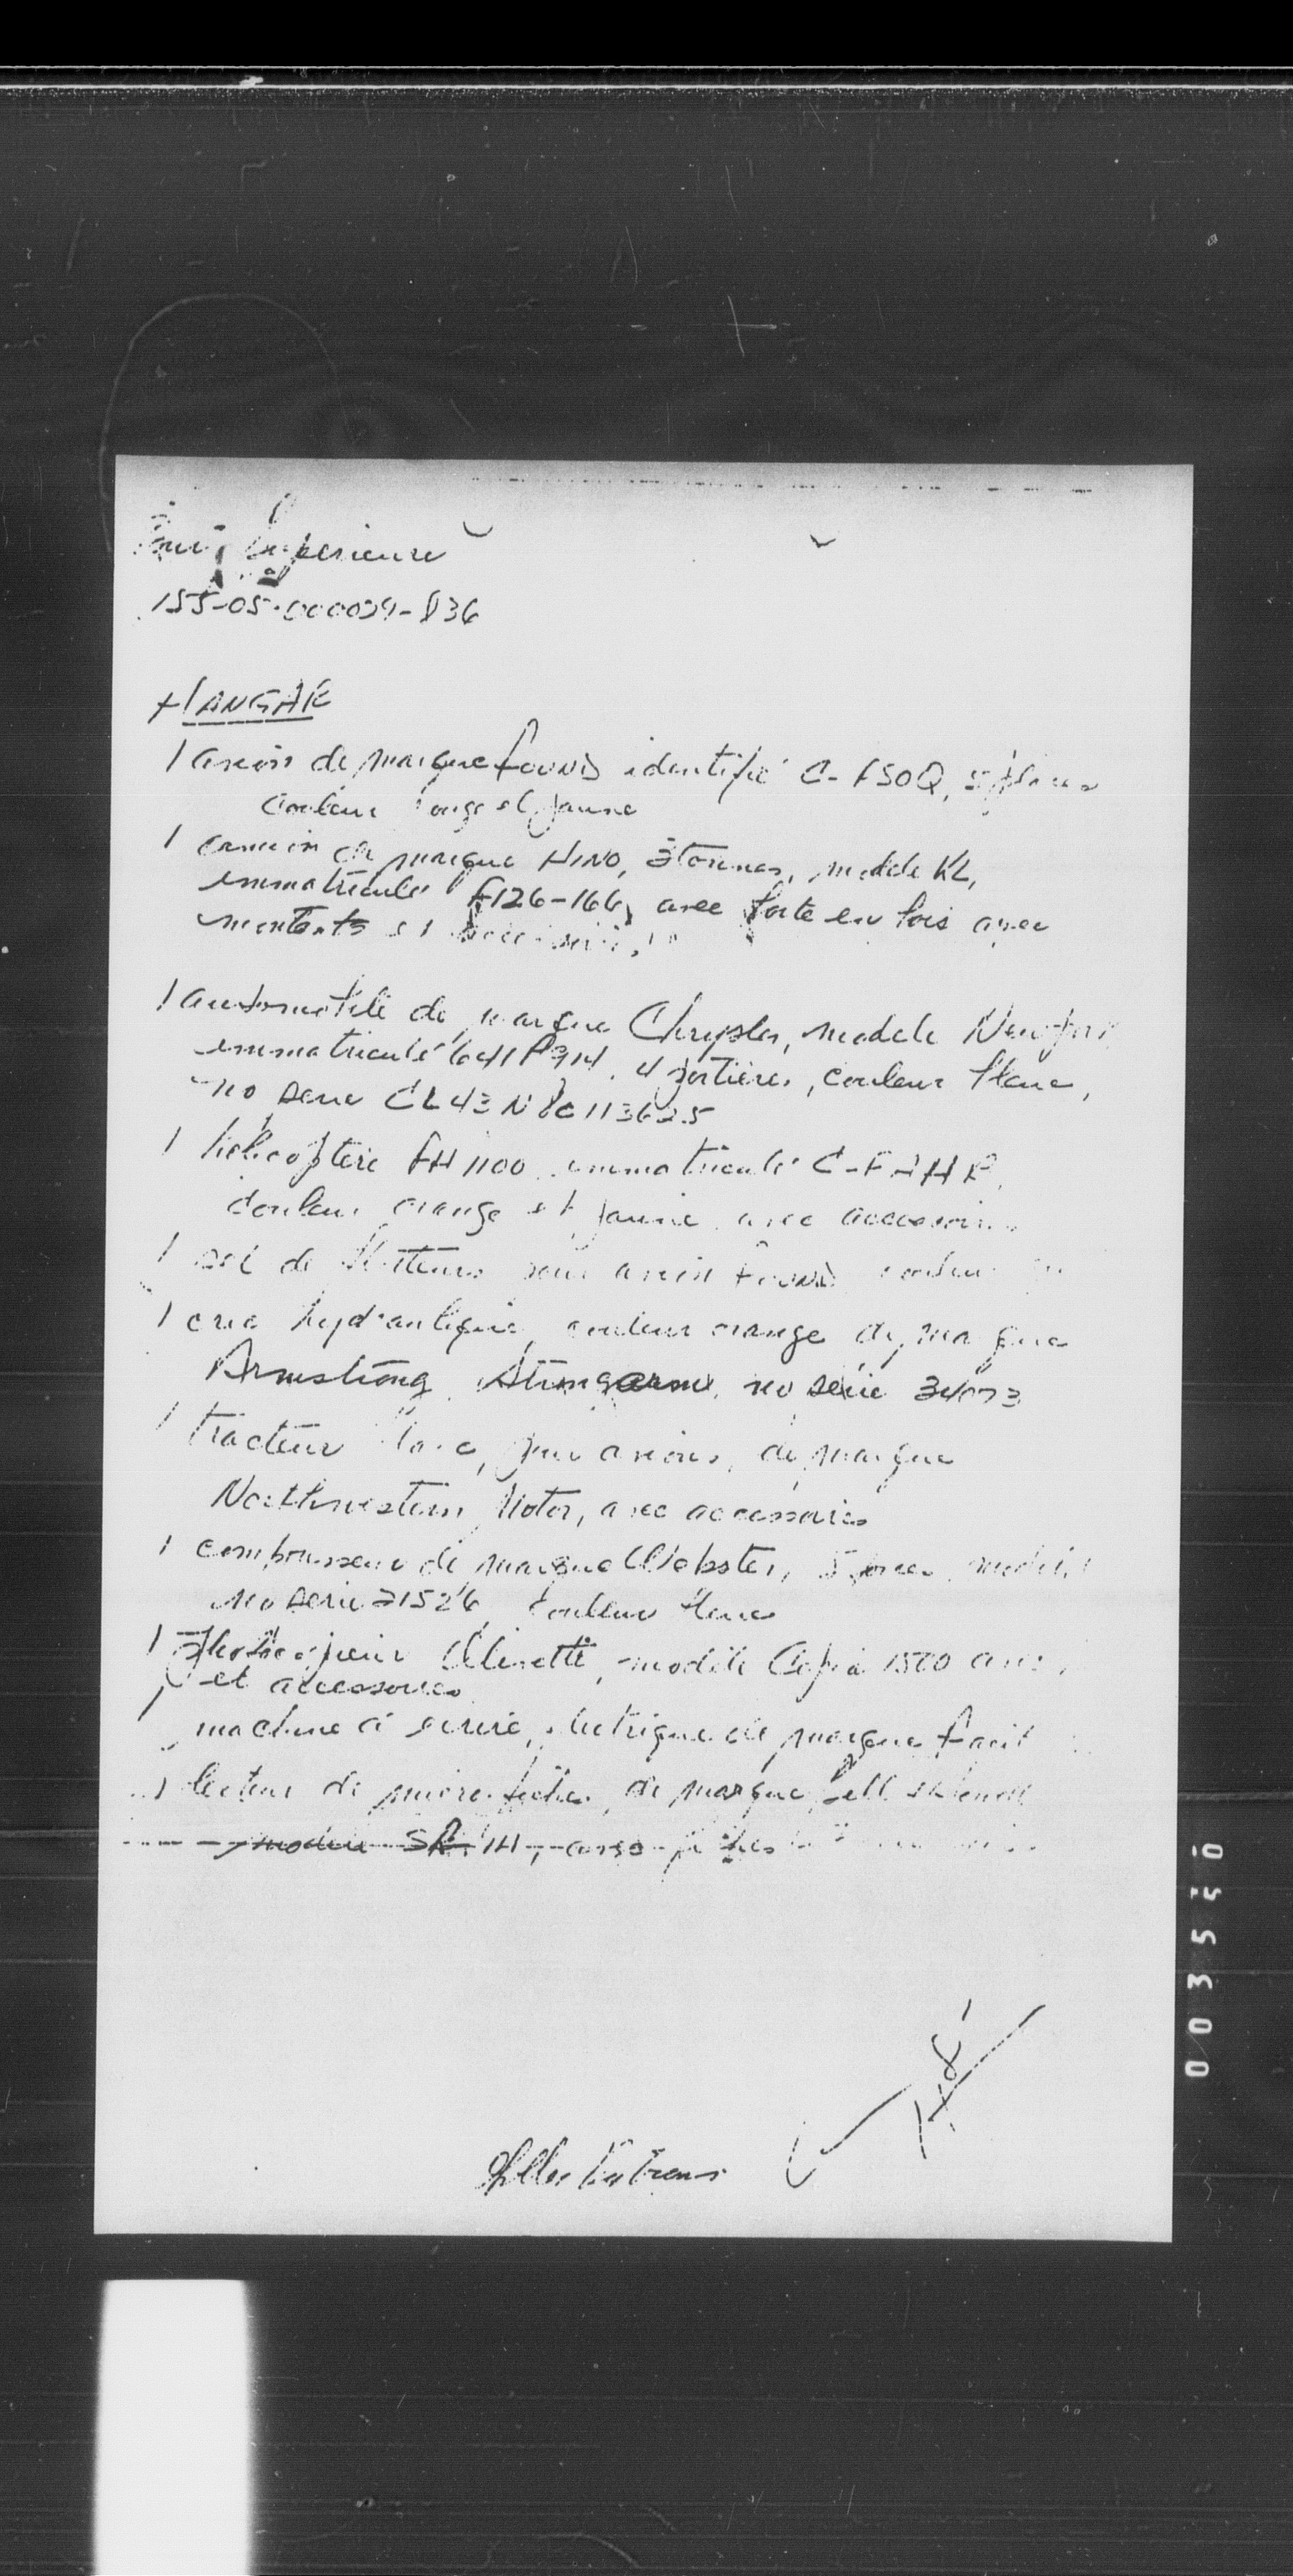 Cour Supérieure
155-05-000039-836
HANGAR
1 avion de marque Found identifié C-FSOQ, 5 places
couleur rouge et jaune
1 camion de marque HINO, 3 tonnes, modele KL,
immatriculé F126-166, avec boite en bois avec
montants et accessoires
1 automobile de marque Chrysler, modele Newport
immatriculé 641P914, 4 portières, couleur blanc,
no serie CL43N8C113625
1 hélicoptère FH 1100 immatriculé C-F
couleur orange et jaune avec accessoires
1 set de flotteurs pour avion Found couleur
1 cric hydraulique, couleur orange de marque
Armstrong Strongarm, no série 34073
1 tracteur pour avions, de marque
Northwestern Motor, avec accessoires
1 compresseur de marque Webster, 5 forces
no serie 21526 couleur blanc
1 photocopieur Olivetti, modèle Copia 1500
et accessoires
machine à écrire électrique de marque Facit
1 lecteur de micro-fiches de marque Bell
modele SR 14, avec
003550